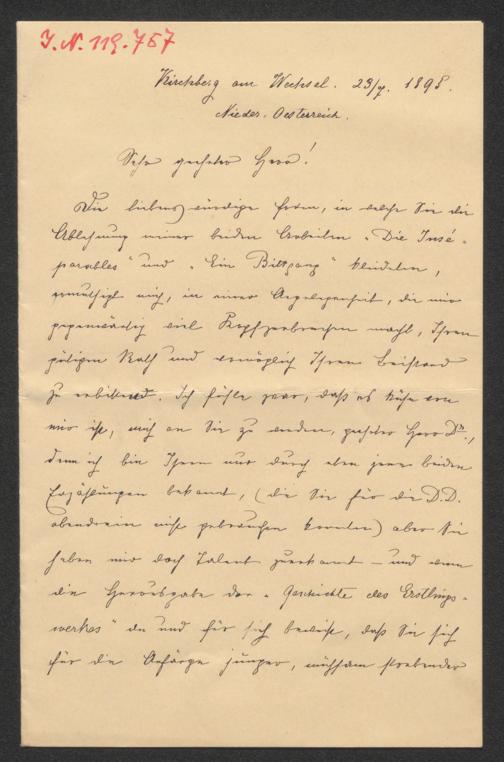 J. N. 119.757
Kirchberg am Wechsel. 23/7. 1898.
Nieder. Oesterreich.
Sehr geehrter Herr!
Die liebenswürdige Form, in welche Sie die
Ablehnung meiner beiden Arbeiten „Die Insé-
parables" und „Ein Bittgang" kleideten,
ermuthigt mich, in einer Angelegenheit, die mir
gegenwärtig viel Kopfzerbrechen macht, Ihren
gütigen Rath und womöglich Ihren Beistand
zu erbitten. Ich fühle zwar, daß es kühn von
mir ist, mich an Sie zu wenden, geehrter Herr Dr.,
denn ich bin Ihnen nur durch eben jene beiden
Erzählungen bekannt, (die Sie für die D.D.
obendrein nicht gebrauchen konnten) aber Sie
haben mir doch Talent zuerkannt – und wenn
die Herausgabe der „Geschichte des Erstlings-
werkes" an und für sich beweist, daß Sie sich
für die Anfänge junger, mühsam strebender